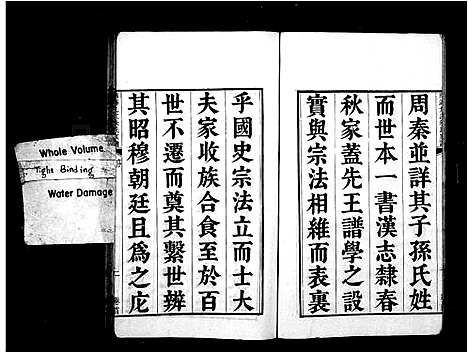 周秦並詳其子孫氏姓
而世本一書漢志隸春
秋家蓋先王譜學之設
實與宗法相維而表裏
乎國史宗法立而士大
夫家收族合食至於百
世不遷而奠其繫世辨
其昭穆朝廷且為之庀
Whole Volume
Tight Binding
Water Damage